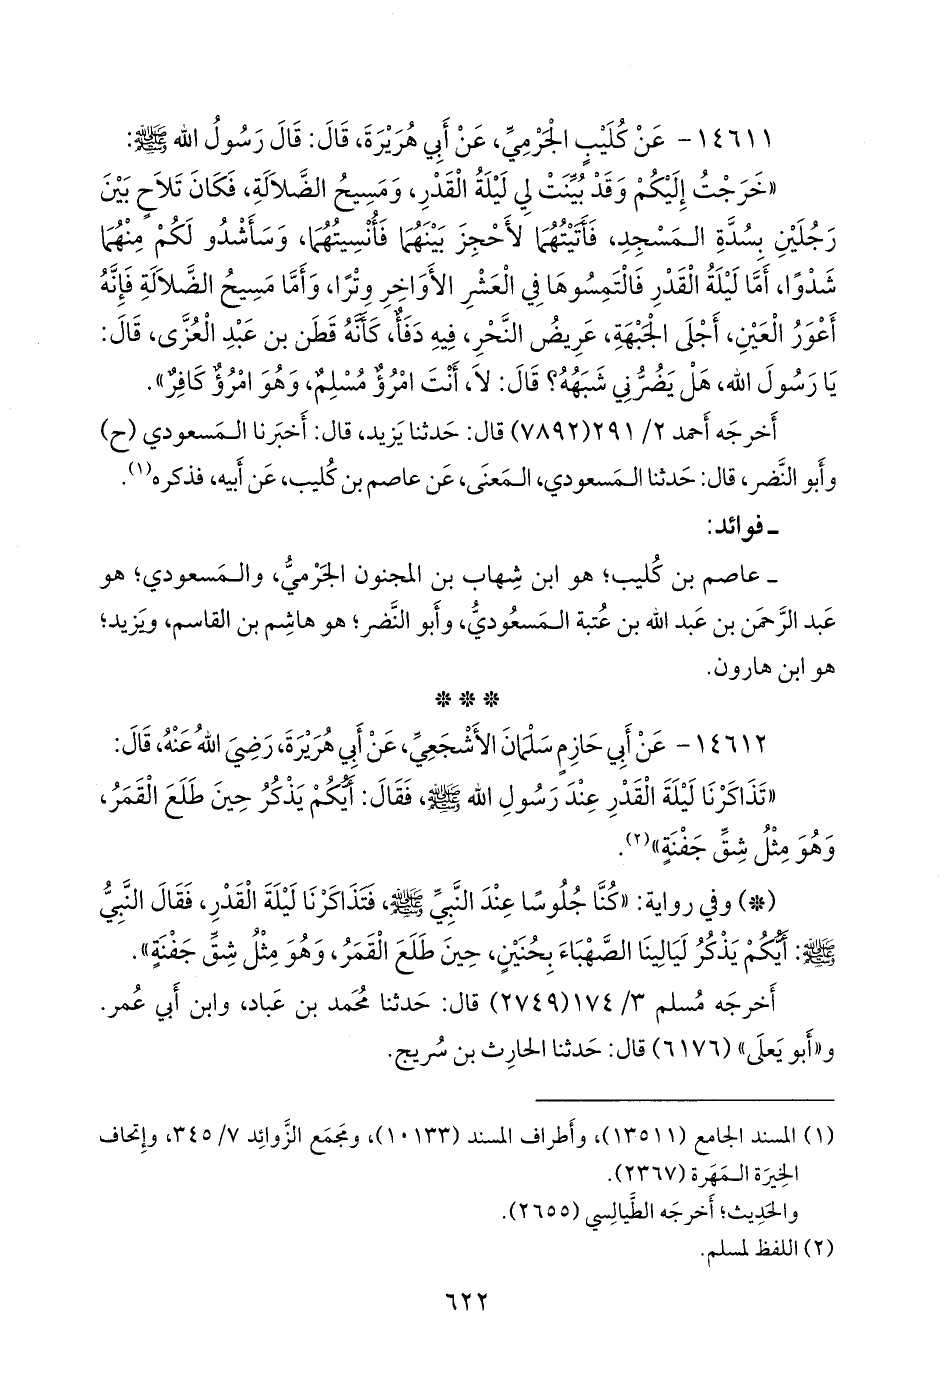 ١٤٦١١- عَنْ كُلَيْبٍ الْجَرْمِيِّ، عَنْ أَبِي هُرَيْرَةَ، قَالَ: قَالَ رَسُولُ الله ﷺ:
«خَرَجْتُ إِلَيْكُمْ وَقَدْ بُيِّنَتْ لِي لَيْلَةُ الْقَدْرِ، وَمَسِيحُ الضَّلاَلَةِ، فَكَانَ تَلاَحٍ بَيْنَ
رَجُلَيْنِ بِسُدَّةِ الـمَسْجِدِ، فَأَتَيْتُهُمَا لأَحْجِزَ بَيْنَهُمَا فَأُنْسِيتُهُمَا، وَسَأَشْدُو لَكُمْ مِنْهُمَا
شَدْوًا، أَمَّا لَيْلَةُ الْقَدْرِ فَالْتَمِسُوهَا فِي الْعَشْرِ الأَوَاخِرِ وِتْرًا، وَأَمَّا مَسِيحُ الضَّلاَلَةِ فَإِنَّهُ
أَعْوَرُ الْعَيْنِ، أَجْلَى الْجَبْهَةِ، عَرِيضُ النَّحْرِ، فِيهِ دَفَأٌ، كَأَنَّهُ قَطَن بن عَبْدِ الْعُزَّى، قَالَ:
يَا رَسُولَ الله، هَلْ يَضُرُّنِي شَبَهُهُ؟ قَالَ: لاَ، أَنْتَ امْرُؤٌ مُسْلِمٌ، وَهُوَ امْرُؤٌ كَافِرٌ».
أَخرجَه أَحمد ٢/ ٢٩١(٧٨٩٢) قال: حَدثنا يَزيد، قال: أَخبَرنا الـمَسعودي (ح)
وأَبو النَّضر، قال: حَدثنا الـمَسعودي، الـمَعنَى، عَن عاصم بن كُليب، عَن أَبيه، فذكره(١).
ـ فوائد:
ـ عاصم بن كُليب؛ هو ابن شِهاب بن المجنون الجَرْميُّ، والـمَسعودي؛ هو
عَبد الرَّحمَن بن عَبد الله بن عُتبة الـمَسعُوديُّ، وأَبو النَّضر؛ هو هاشِم بن القاسم، ويَزيد؛
هو ابن هارون.
* * *
١٤٦١٢- عَنْ أَبِي حَازِمٍ سَلْمَانَ الأَشْجَعِيِّ، عَنْ أَبِي هُرَيْرَةَ، رَضِيَ اللهُ عَنْهُ، قَالَ:
«تَذَاكَرْنَا لَيْلَةَ الْقَدْرِ عِنْدَ رَسُولِ الله ﷺ، فَقَالَ: أَيُّكُمْ يَذْكُرُ حِينَ طَلَعَ الْقَمَرُ،
وَهُوَ مِثْلُ شِقِّ جَفْنَةٍ»(٢).
(*) وفي رواية: «كُنَّا جُلُوسًا عِنْدَ النَّبِيِّ ﷺ، فَتَذَاكَرْنَا لَيْلَةَ الْقَدْرِ، فَقَالَ النَّبِيُّ
ﷺ: أَيُّكُمْ يَذْكُرُ لَيَالِيَنَا الصَّهْبَاءَ بِحُنَيْنٍ، حِينَ طَلَعَ الْقَمَرُ، وَهُوَ مِثْلُ شِقِّ جَفْنَةٍ».
أَخرجَه مُسلم ٣/ ١٧٤(٢٧٤٩) قال: حَدثنا مُحَمد بن عَباد، وابن أَبي عُمر.
و«أَبو يَعلَى» (٦١٧٦) قال: حَدثنا الحارِث بن سُريج.
(١) المسند الجامع (١٣٥١١)، وأَطراف المسند (١٠١٣٣)، ومَجمَع الزَّوائِد ٧/ ٣٤٥، وإِتحاف
الخِيرَة الـمَهَرة (٢٣٦٧).
والحَدِيث؛ أَخرجَه الطَّيالِسي (٢٦٥٥).
(٢) اللفظ لمسلم.
٦٢٢